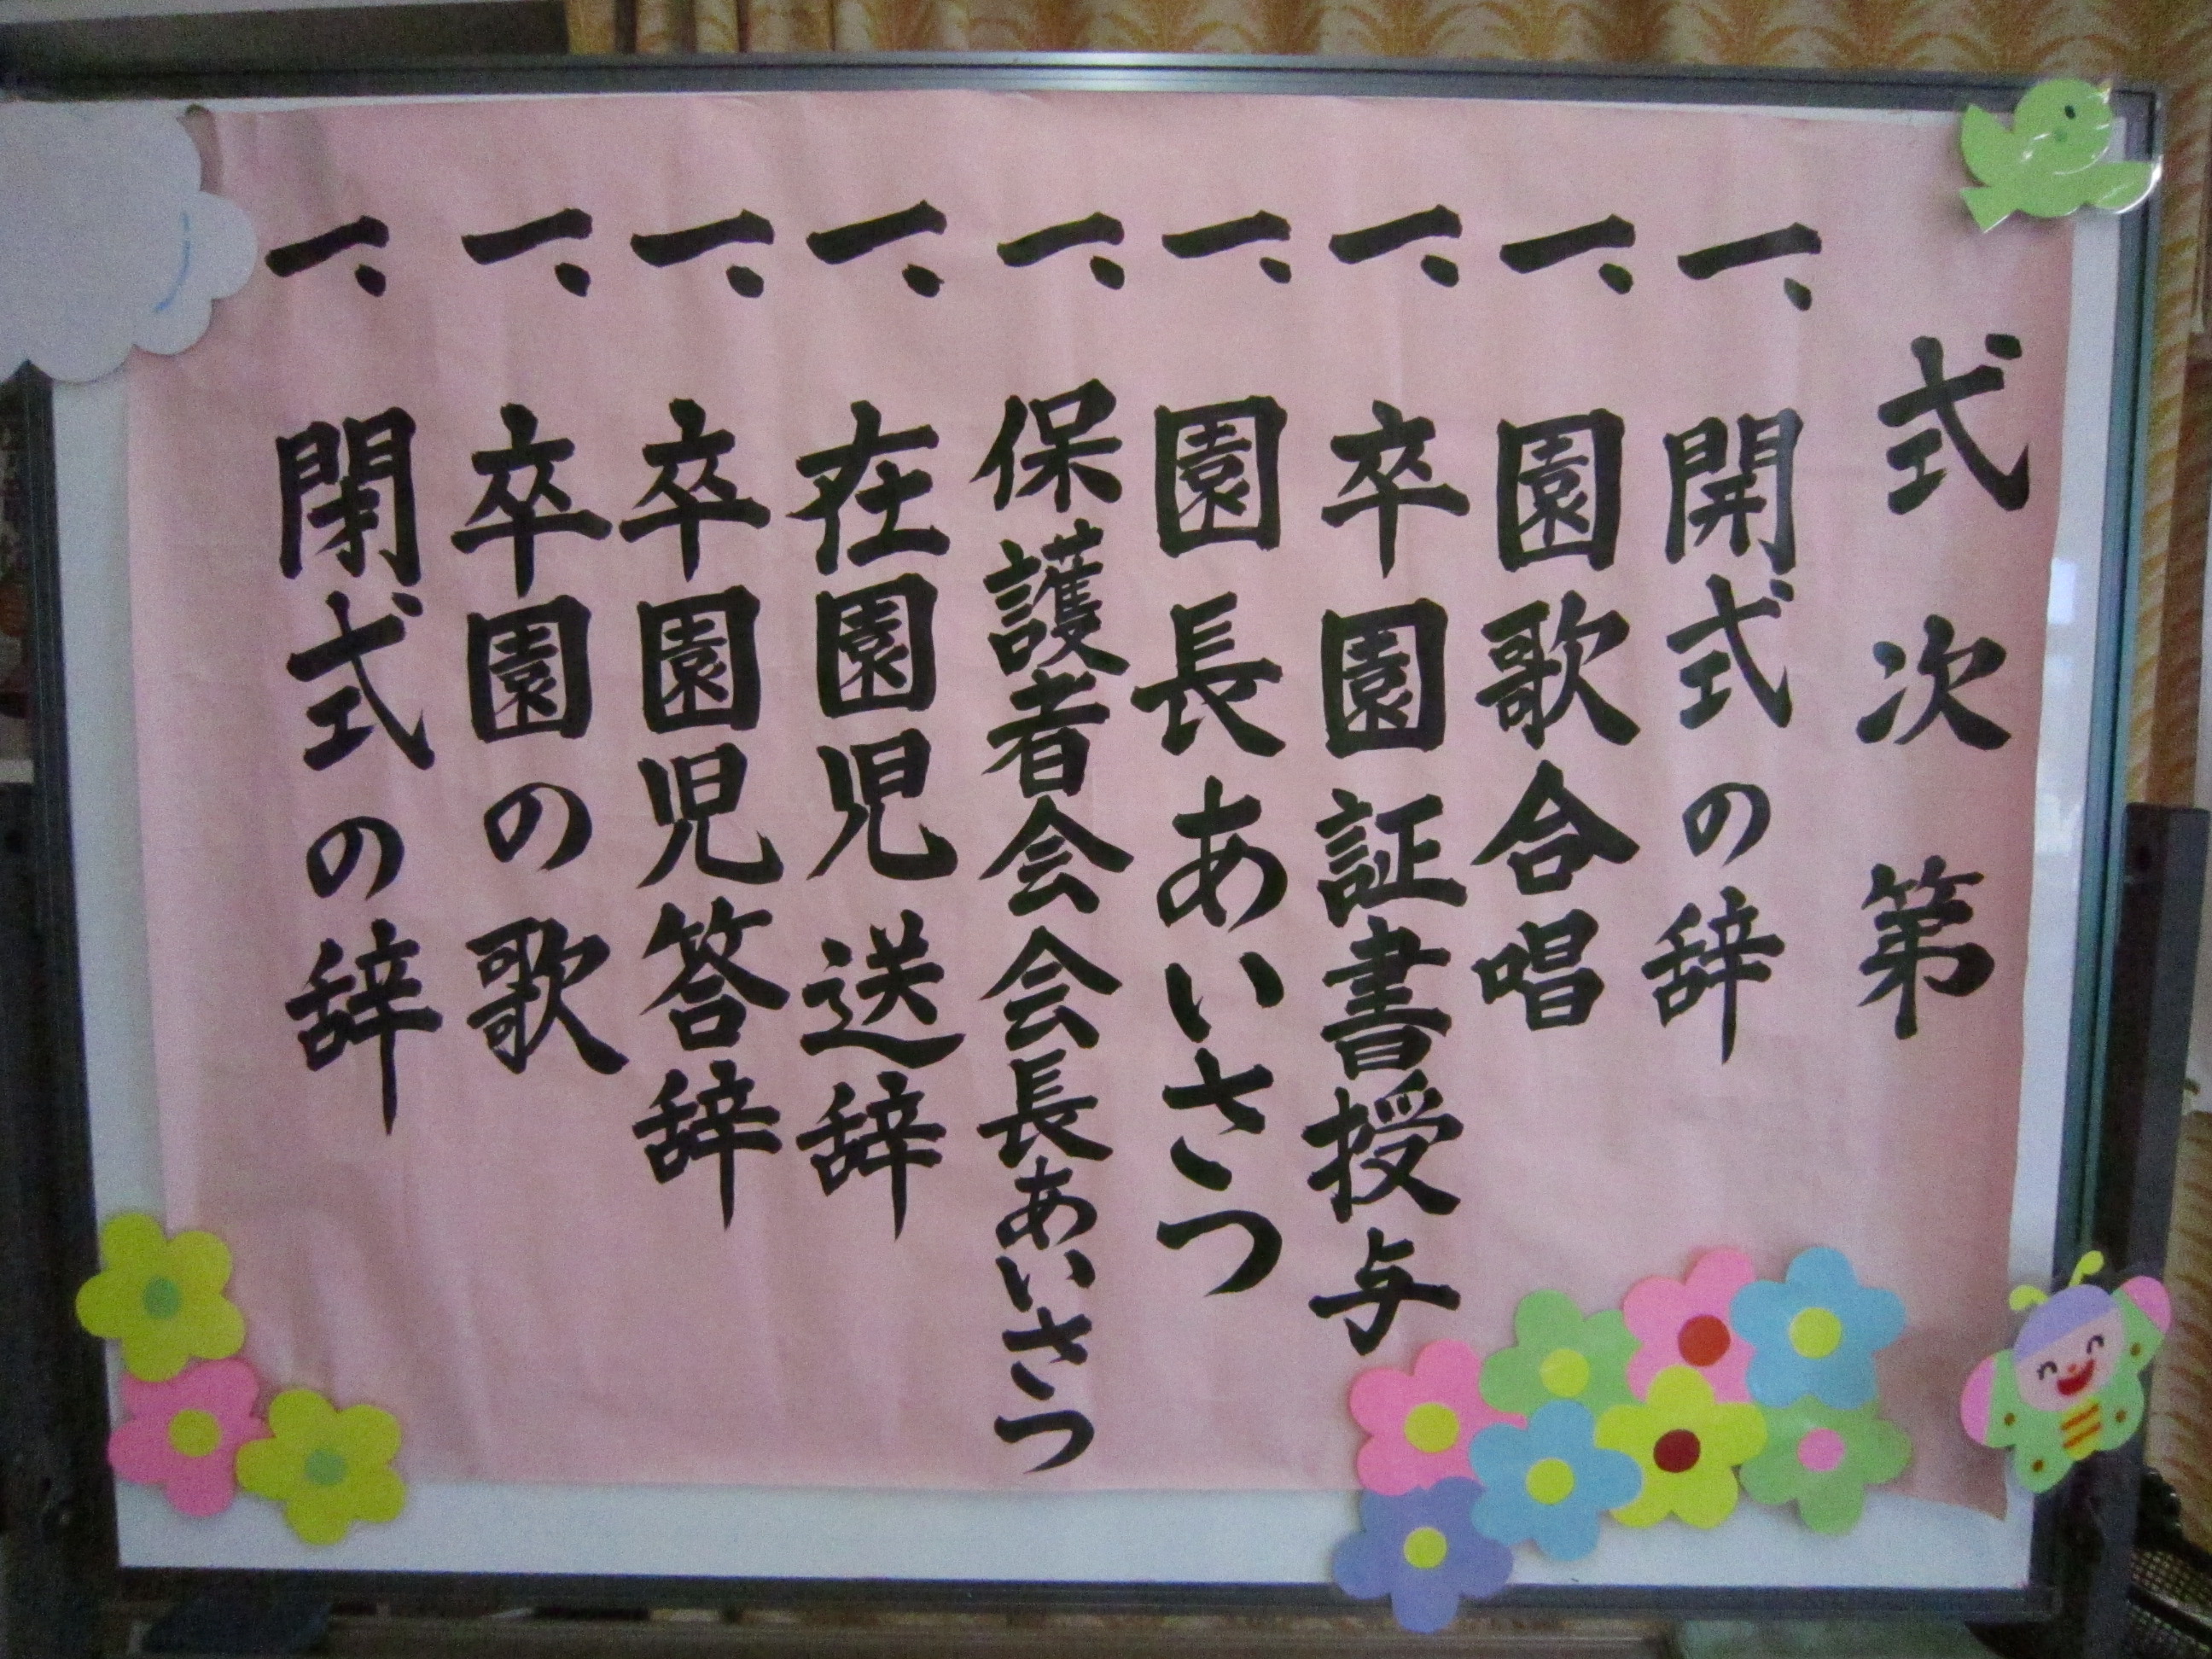 式次第
一、開式の辞
一、園歌合唱
一、卒園証書授与
一、園長あいさつ
一、保護者会会長あいさつ
一、在園児送辞
一、卒園児答辞
一、卒園の歌
一、閉式の辞